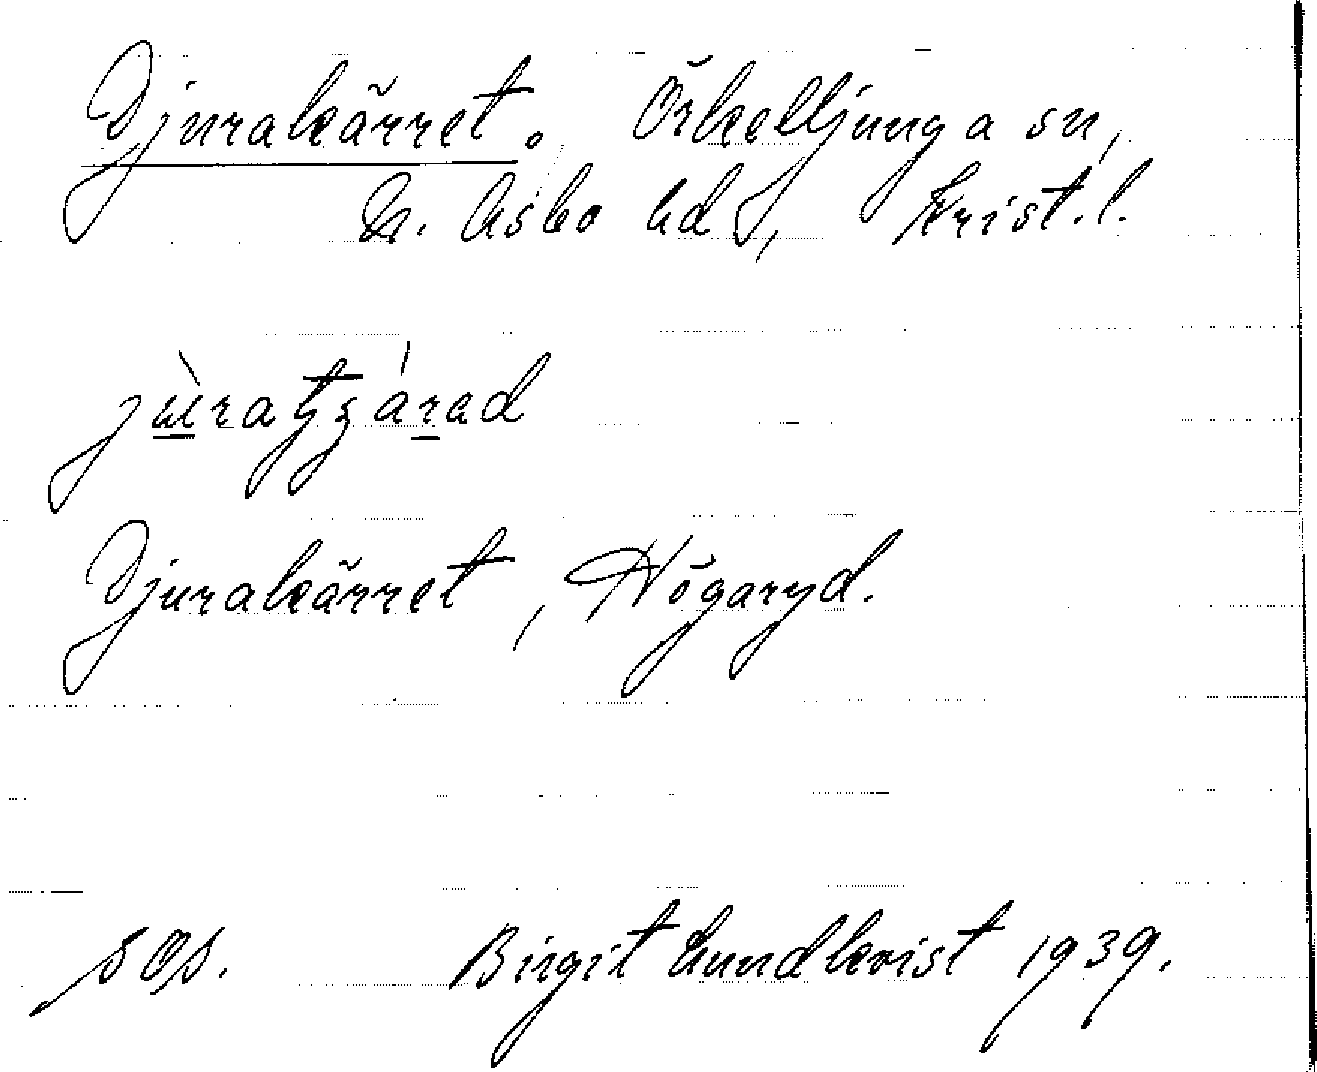 Djurakärret. Örkelljunga sn,
N. Åsbo hd, Krist. l.
Djurakärret, Högaryd.
sos. Birgit Lundkvist 1939.